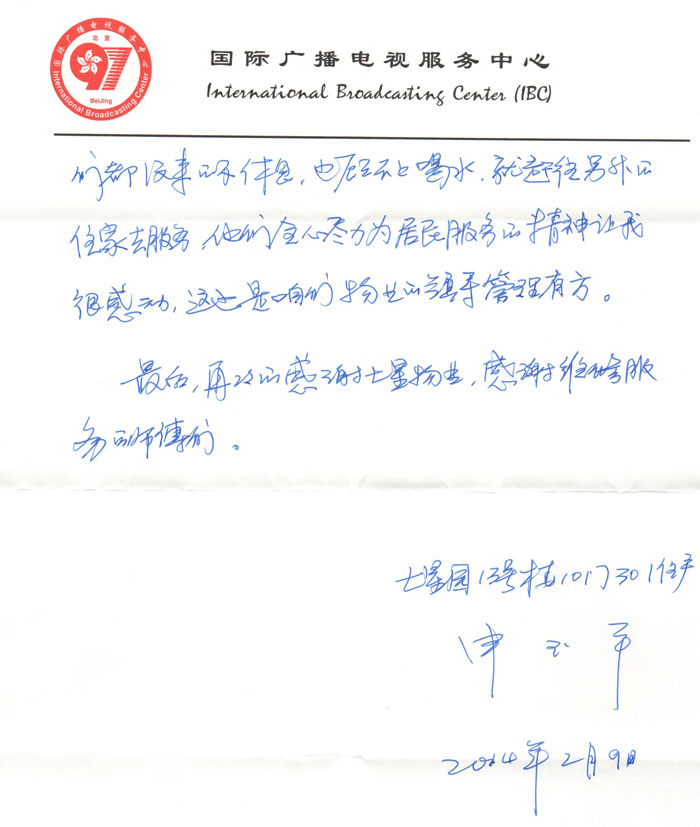 国际广播电视服务中心
北京
97
BeiJing
International Broadcasting Center
国际广播电视服务中心
International Broadcasting Center (IBC)
们都没来的及休息，也顾不上喝水，就赶往另外的
住家去服务，他们全心尽力为居民服务的精神让我
很感动，这也是咱们物业的领导管理有方。
最后，再次的感谢七星物业，感谢维修服
务的师傅们。
七星园13号楼101门301住户
2014年2月9日